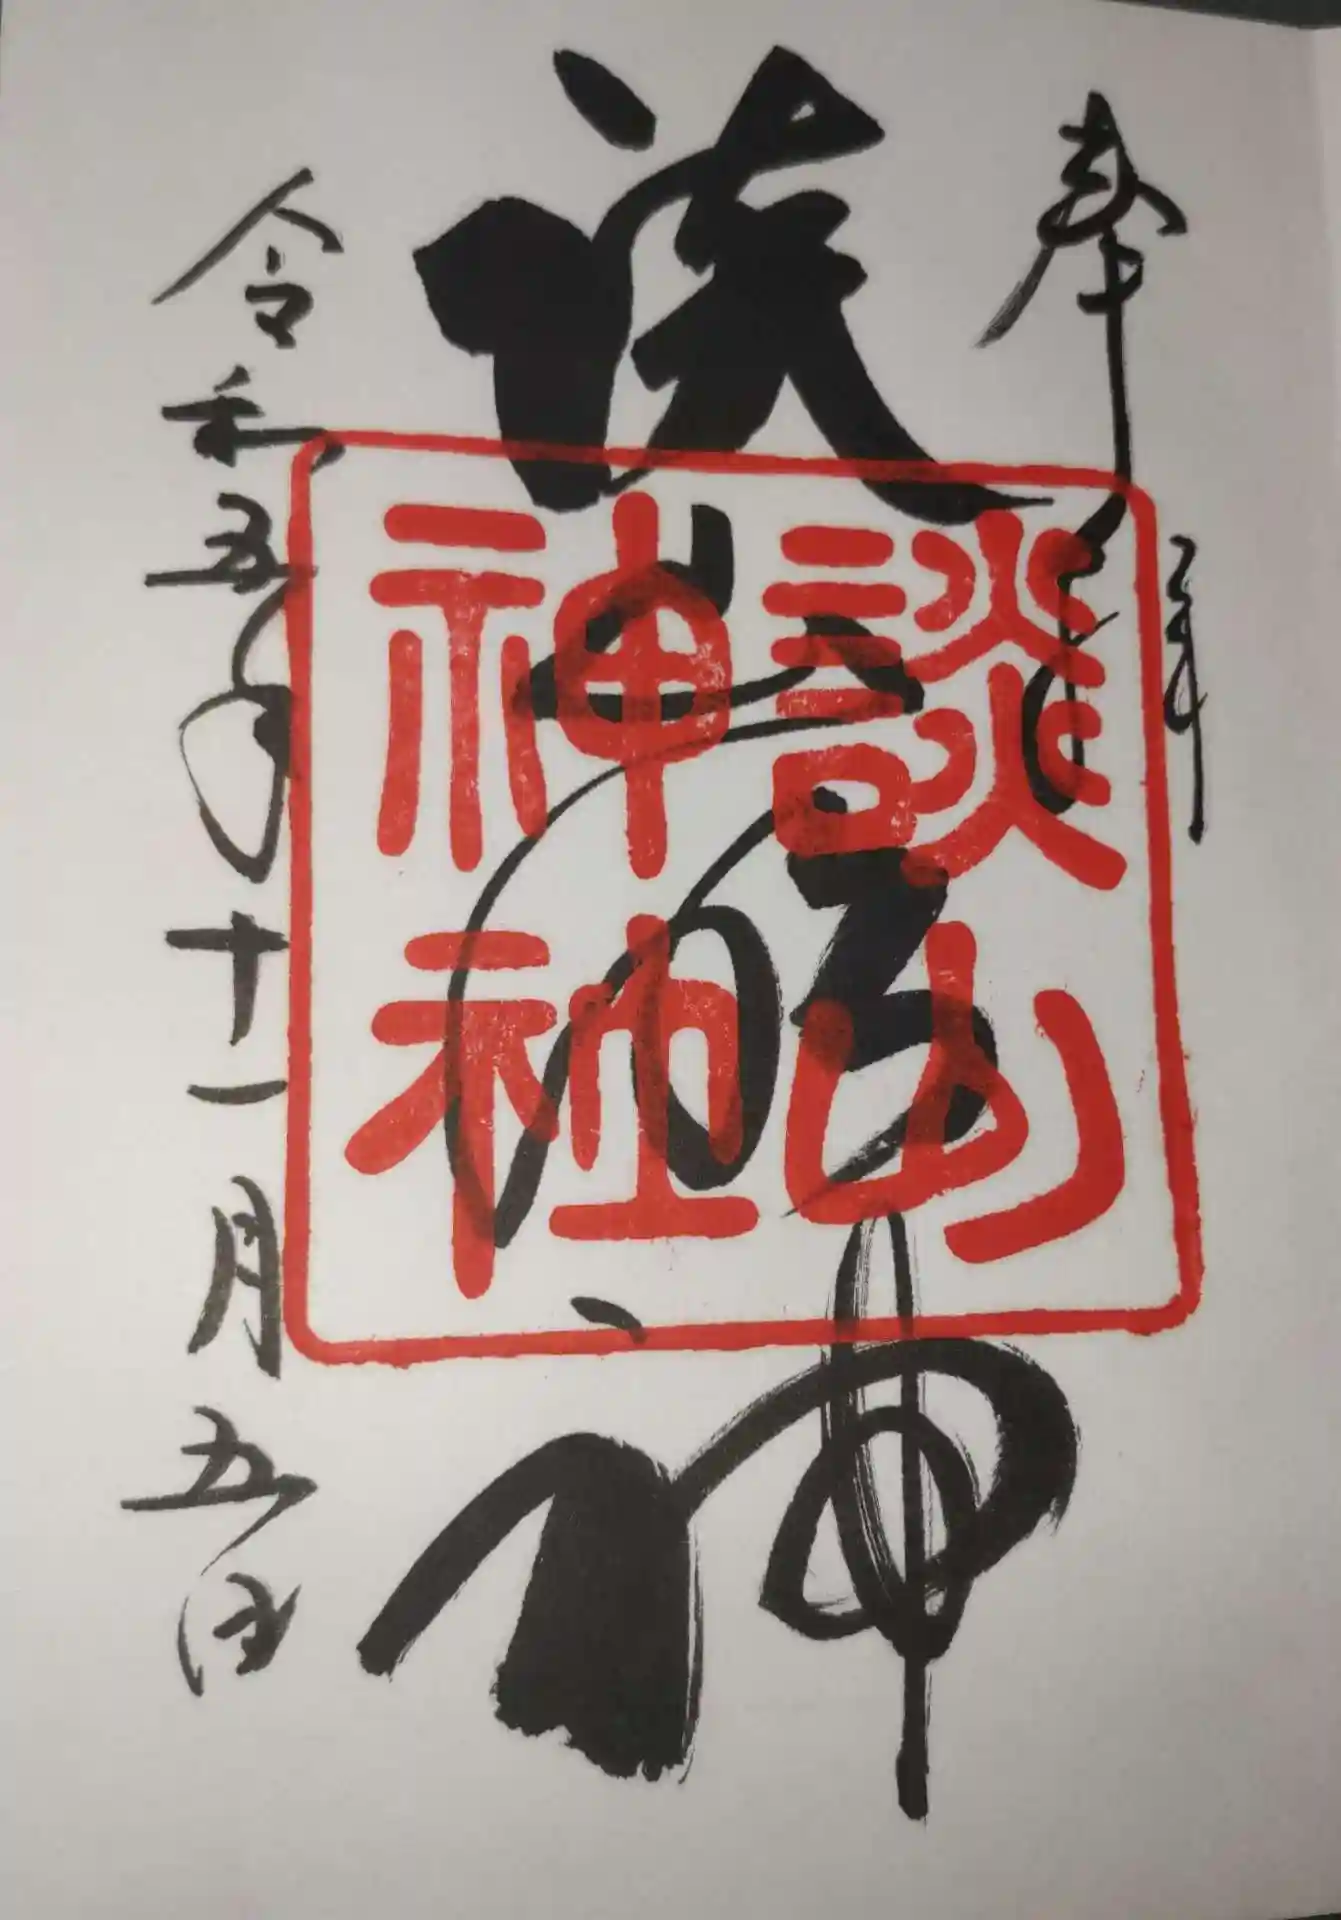 奉拝
談
神
談山
神社
令和五年十一月五日